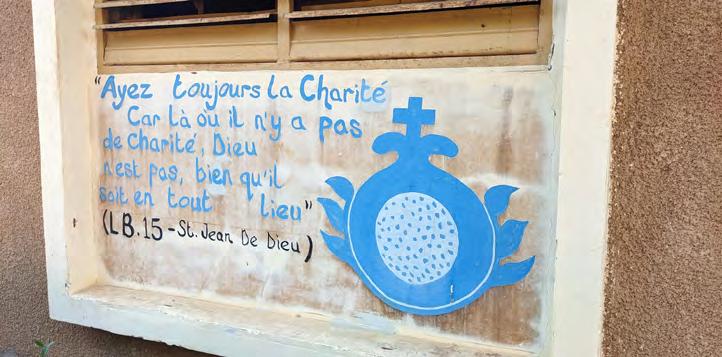 "Ayez toujours la Charité
Car là où il n'y a pas
de charité, Dieu
n'est pas, bien qu'il
soit en tout lieu"
(LB.15 - St. Jean De Dieu)